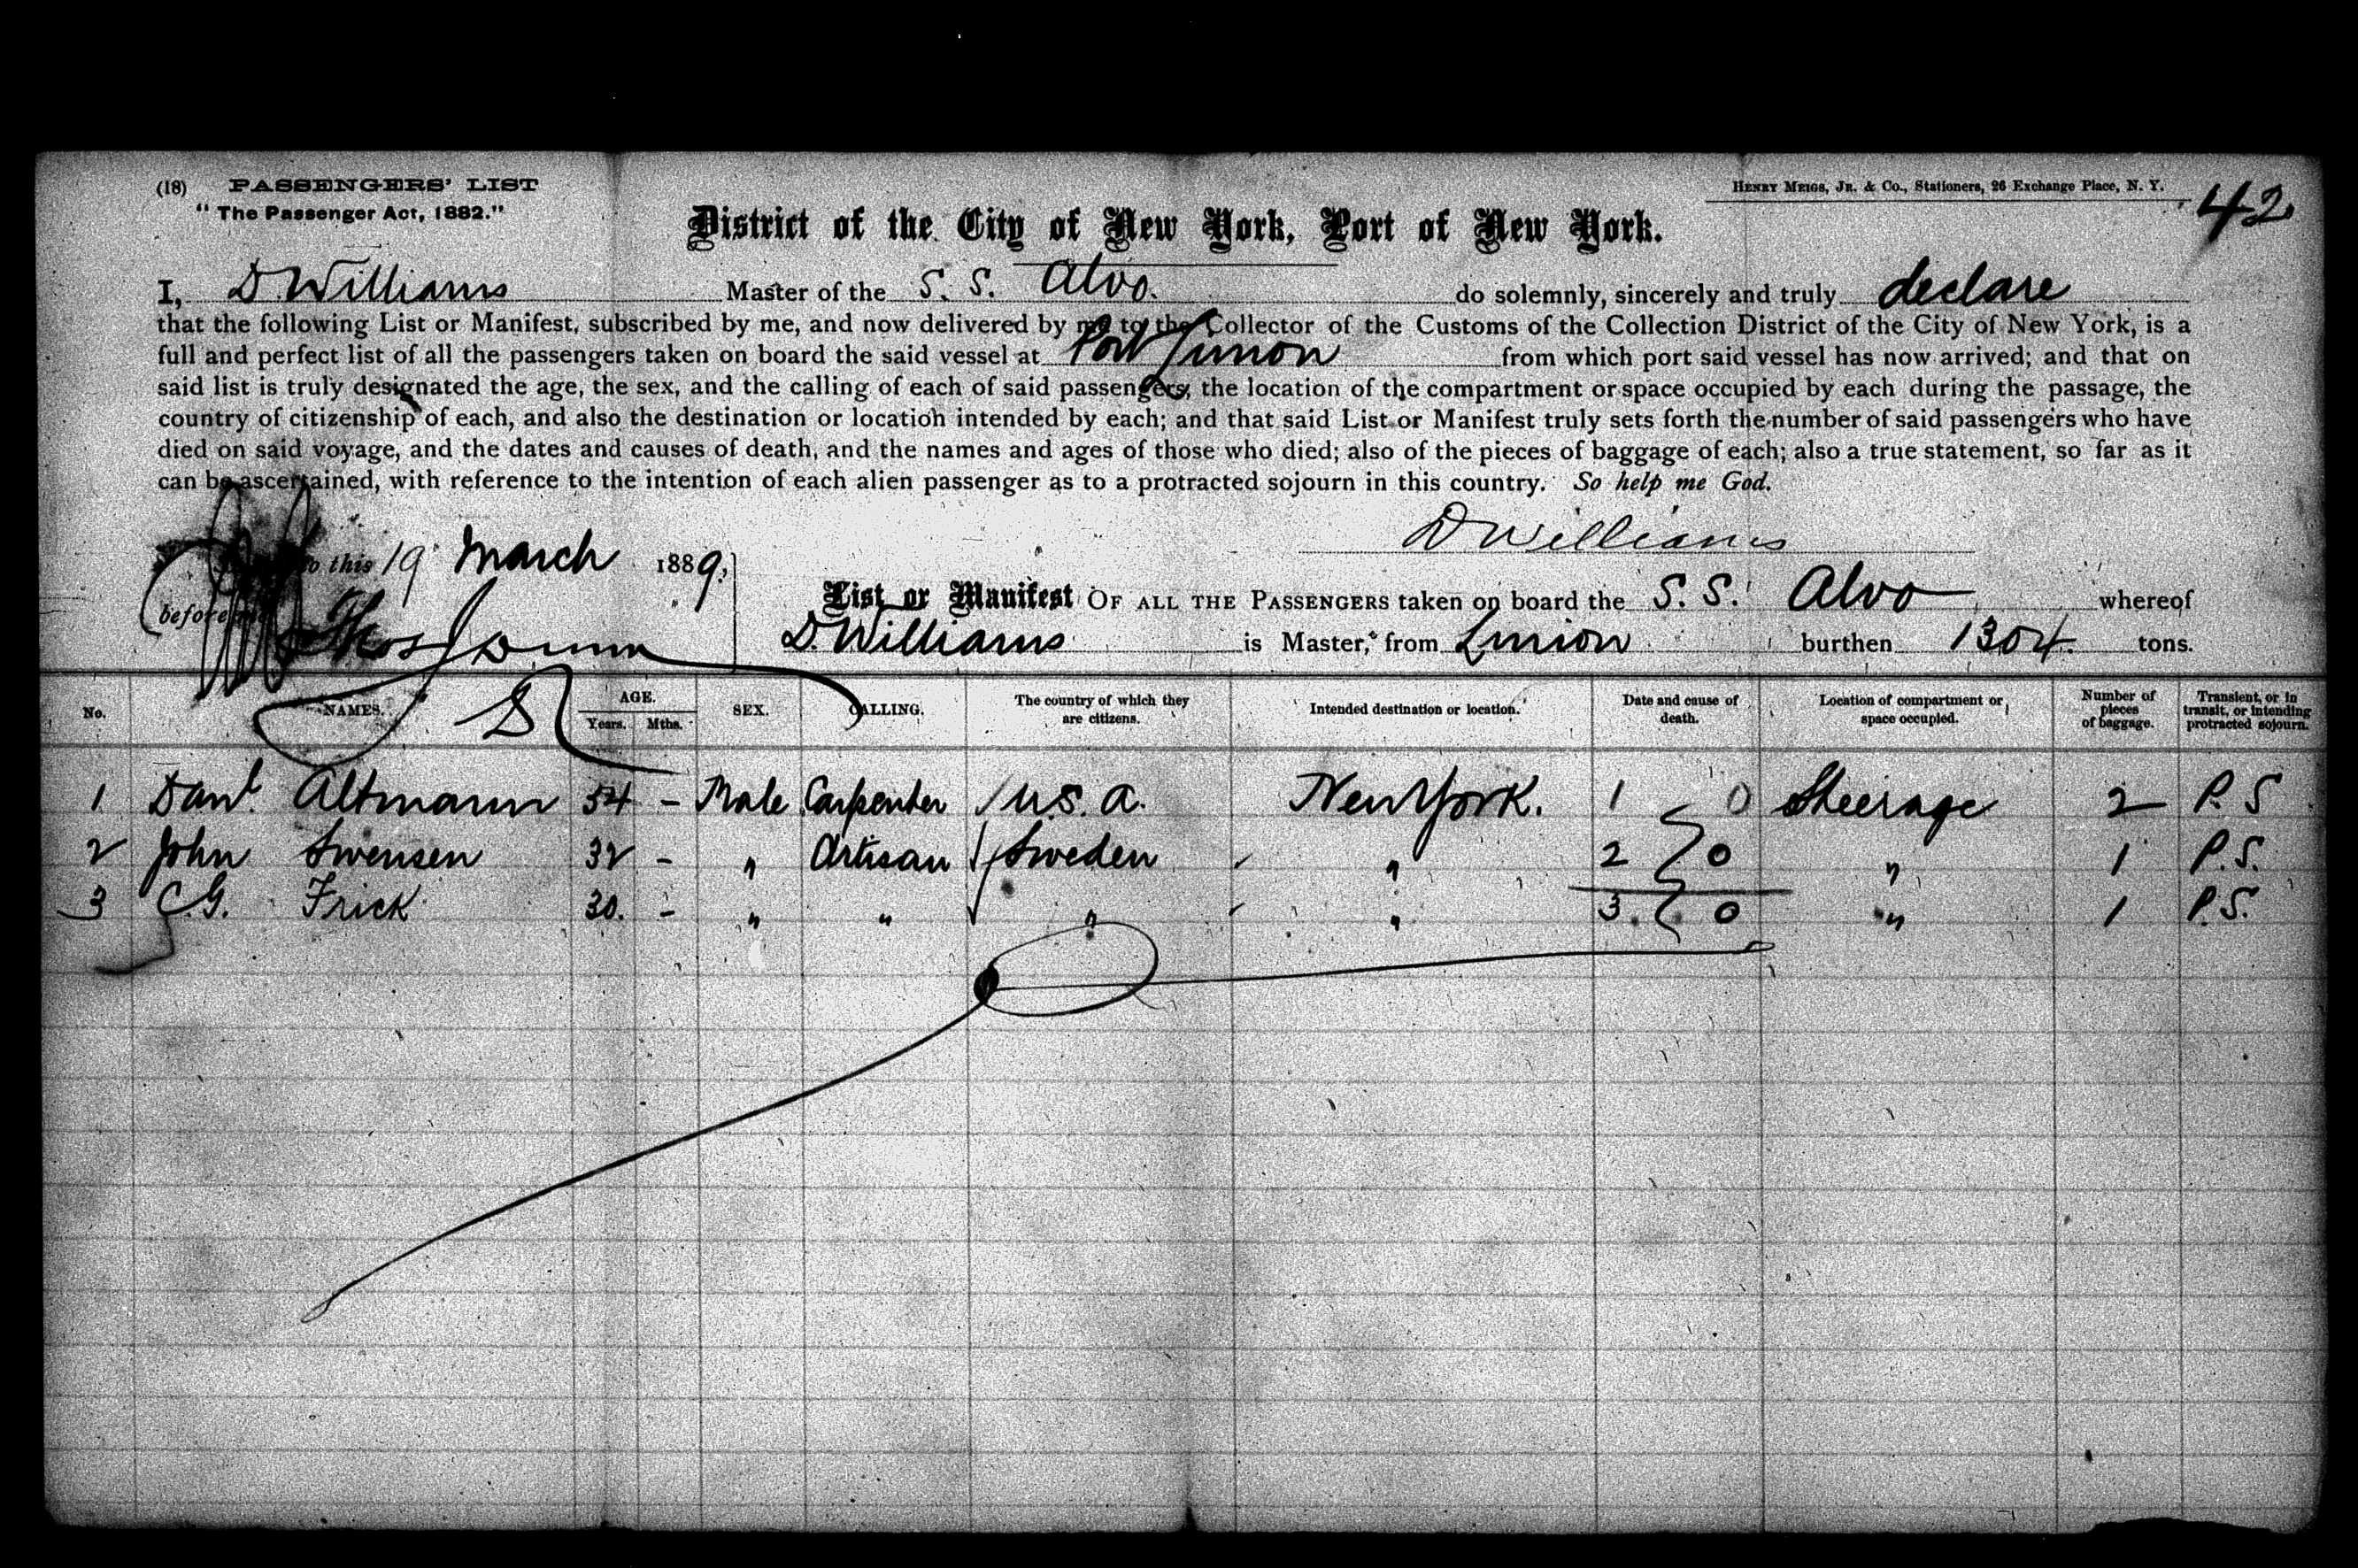 (18) PASSENGERS' LIST
"The Passenger Act, 1882."
HENRY MEIGS, JR. & Co., Stationers, 26 Exchange Place, N. Y.
42
District of the City of New York, Port of New York.
I, D. Williams Master of the S. S. Alvo. do solemnly, sincerely and truly declare
that the following List or Manifest, subscribed by me, and now delivered by me to the Collector of the Customs of the Collection District of the City of New York, is a
full and perfect list of all the passengers taken on board the said vessel at Port Limon from which port said vessel has now arrived; and that on
said list is truly designated the age, the sex, and the calling of each of said passengers, the location of the compartment or space occupied by each during the passage, the
country of citizenship of each, and also the destination or location intended by each; and that said List or Manifest truly sets forth the number of said passengers who have
died on said voyage, and the dates and causes of death, and the names and ages of those who died; also of the pieces of baggage of each; also a true statement, so far as it
can be ascertained, with reference to the intention of each alien passenger as to a protracted sojourn in this country. So help me God.
D Williams
to this 19 March 1889,
before me
Thos Dunn
List or Manifest OF ALL THE PASSENGERS taken on board the S. S. Alvo whereof
D. Williams is Master, from Limon burthen 1304 tons.
No. NAMES. AGE. Years. Mths. SEX. CALLING. The country of which they are citizens. Intended destination or location. Date and cause of death. Location of compartment or space occupied. Number of pieces of baggage. Transient, or in transit, or intending protracted sojourn.
1 Danl. Altmann 54 - Male Carpenter U.S.A. New York. 1 0 Steerage 2 P.S
2 John Swensen 32 - " Artisan Sweden " 2 0 " 1 P.S.
3 C.G. Frick 30. - " " " " 3 0 " 1 P.S.